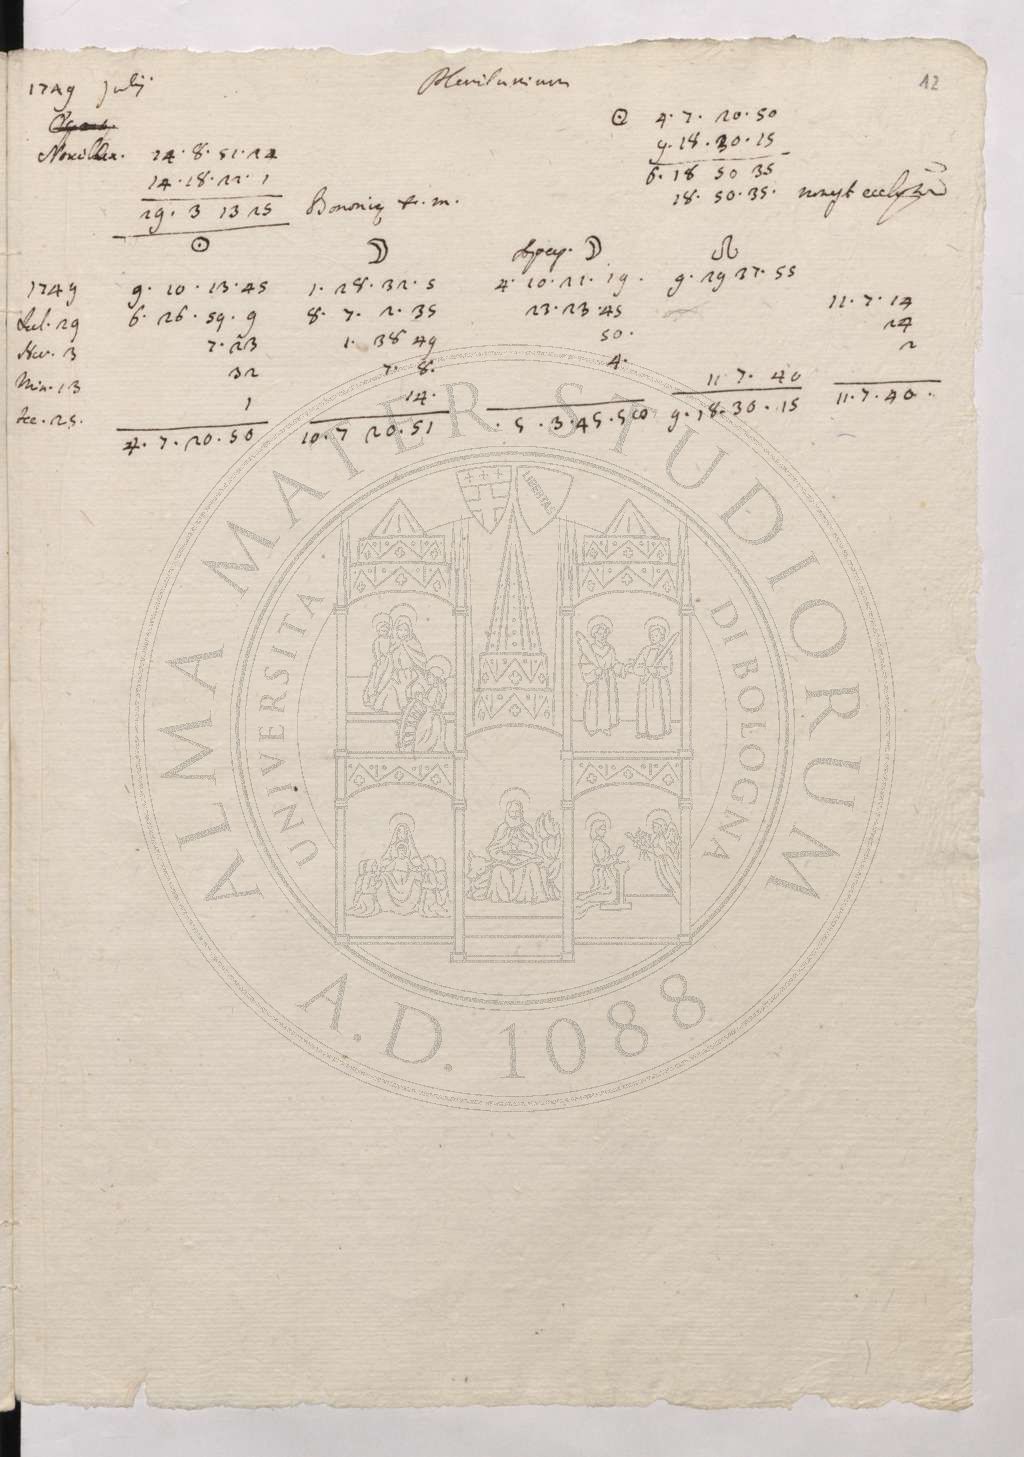 1749 Julij Plenilunium 12
☉ 4. 7. 20. 50
Novilun. 14. 8. 51. 24 9. 18. 30. 15
14. 18. 22. 1 6. 18 50 35
29. 3 13 25 Bononiæ t. m. 18. 50. 35. non est eclypsis
☉ ☽ Apog. ☽ ☊
1749 9. 10. 13. 45 1. 28. 32. 5 4. 10. 21. 19. 9. 29 37. 55
Jul. 29 6. 26. 59. 9 8. 7. 2. 35 23. 23. 45 11. 7. 14
Hor. 3 7. 23 1. 38 49 50. 24
Min. 13 32 7. 8. 4. 2
Sec. 25. 1 14. 11 7. 40
4. 7. 20. 50 10. 7 20. 51 5. 3. 45. 58 9. 18. 30. 15 11. 7. 40.
ALMA MATER STUDIORUM
UNIVERSITA DI BOLOGNA
LIBERTAS
A.D. 1088